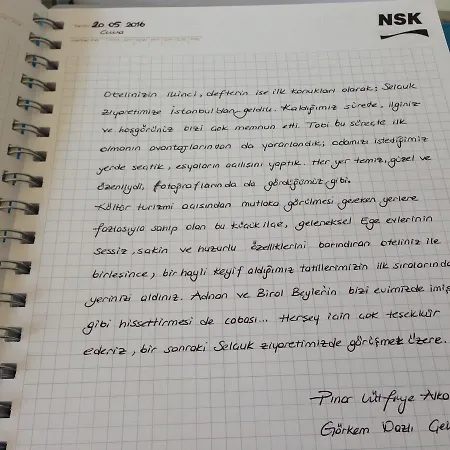 NSK
20 05 2016
Cuma
Otelinizin ikinci, defterin ise ilk konukları olarak; Selçuk
ziyaretimize İstanbul'dan geldik. Kaldığımız sürede, ilginiz
ve hoşgörünüz bizi çok memnun etti. Tabi bu süreçte ilk
olmanın avantajlarından da yararlandık; odamızı istediğimiz
yerde seçtik, eşyaların açılışını yaptık. Her yer temiz, güzel ve
özenliydi, fotoğraflarında da gördüğümüz gibi.
Kültür turizmi açısından mutlaka görülmesi gereken yerlere
fazlasıyla sahip olan bu küçük ilçe, geleneksel Ege evlerinin
sessiz, sakin ve huzurlu özelliklerini barındıran oteliniz ile
birleşince, bir hayli keyif aldığımız tatillerimizin ilk sıralarında
yerinizi aldınız. Adnan ve Birol Beylerin bizi evimizde imiş
gibi hissettirmesi de cabası... Herşey için çok teşekkür
ederiz, bir sonraki Selçuk ziyaretimizde görüşmek üzere.
Pınar Lütfiye
Görkem